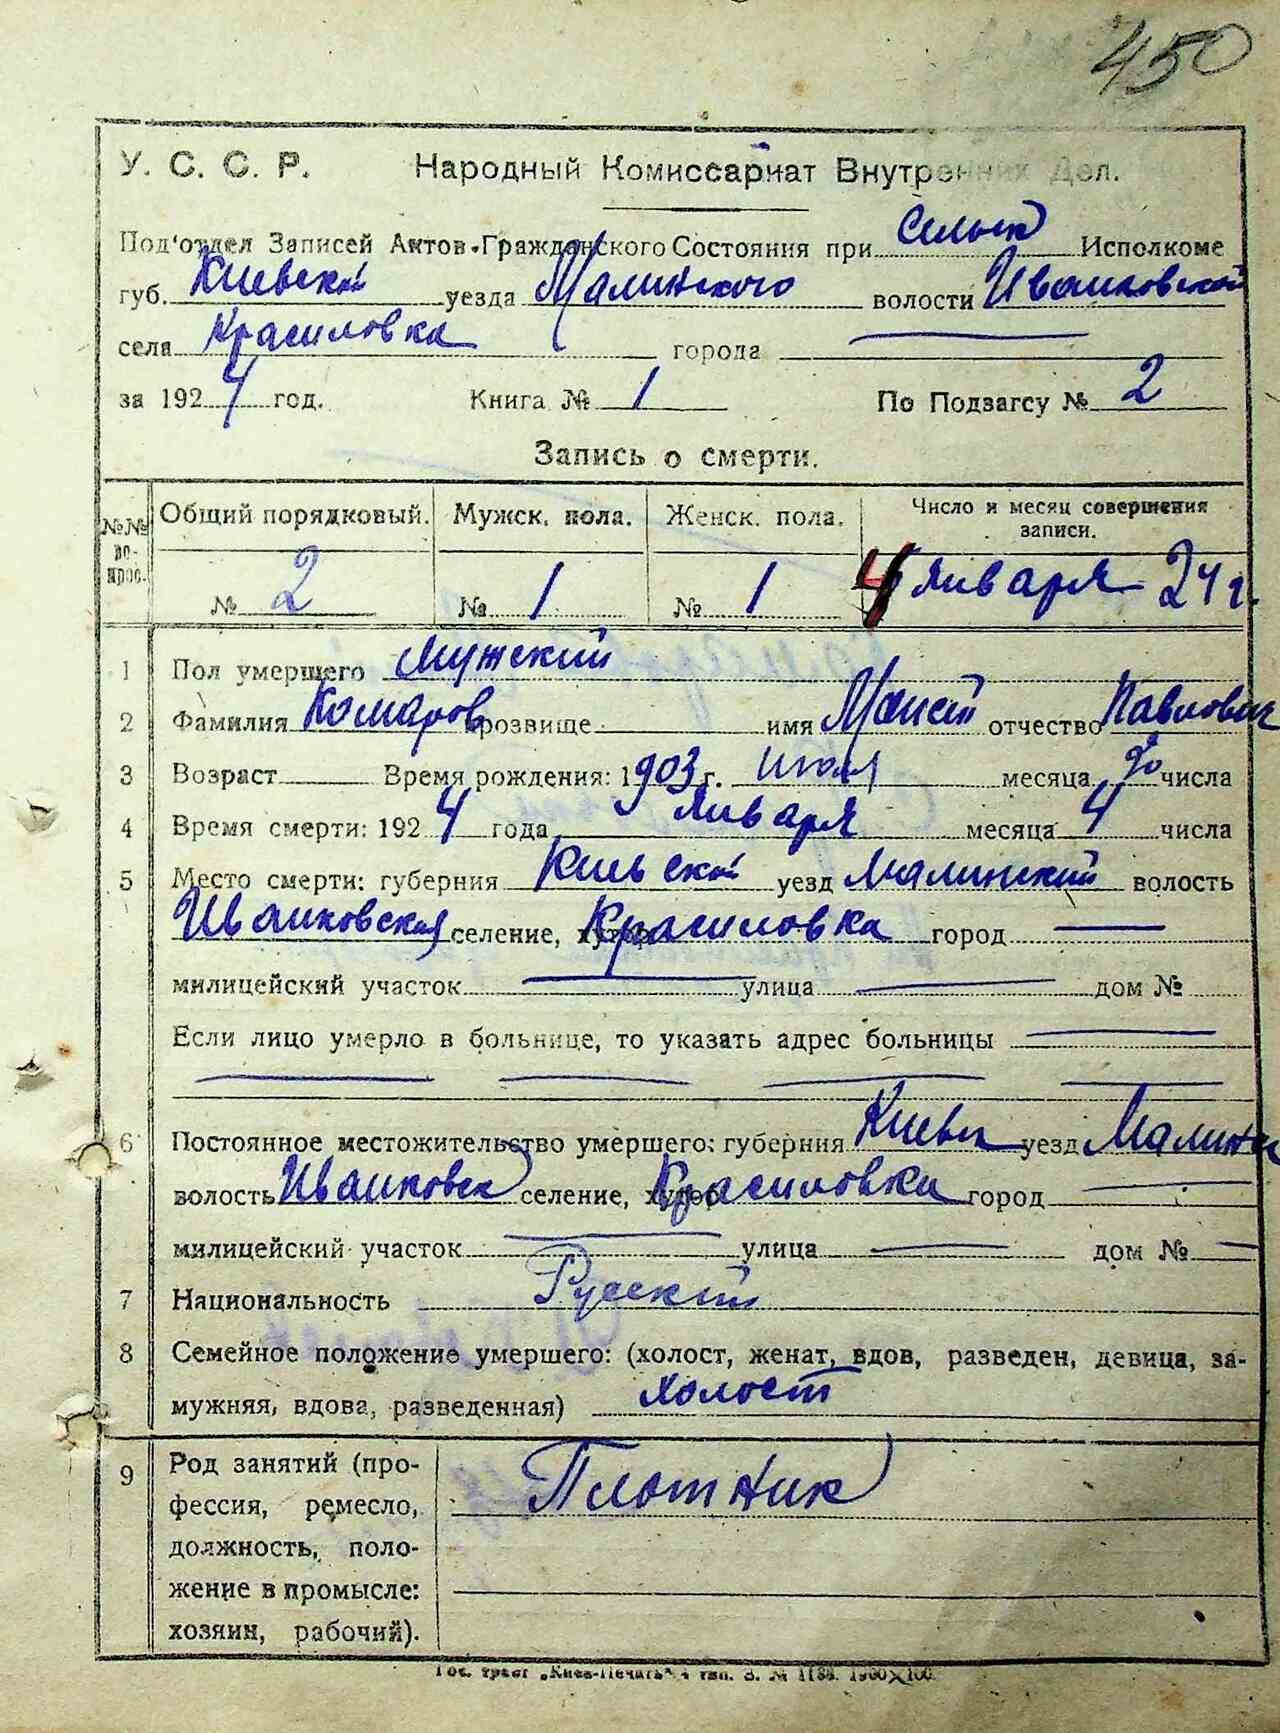 450
У. С. С. Р. Народный Комиссариат Внутренних Дел.
Под'отдел Записей Актов Гражданского Состояния при Сельск Исполкоме
губ. Киевской уезда Малинского волости Иванковской
села Красиловка города
за 1924 год. Книга № 1 По Подзагсу № 2
Запись о смерти.
№№ вопрос. Общий порядковый. Мужск. пола. Женск. пола. Число и месяц совершения записи.
№ 2 № 1 № 1 4 января 24 г.
1 Пол умершего Мужский
2 Фамилия Комаров прозвище имя отчество Павлович
3 Возраст Время рождения: 1903 г. июля месяца 20 числа
4 Время смерти: 1924 года Января месяца 4 числа
5 Место смерти: губерния Киевской уезд Малинский волость
Иванковская селение, хутор Красиловка город
милицейский участок улица дом №
Если лицо умерло в больнице, то указать адрес больницы
6 Постоянное местожительство умершего: губерния Киевск уезд Малинск
волость Иванковск селение, хутор Красиловка город
милицейский участок улица дом №
7 Национальность Русский
8 Семейное положение умершего: (холост, женат, вдов, разведен, девица, за-
мужняя, вдова, разведенная) холост
9 Род занятий (про- Плотник
фессия, ремесло,
должность, поло-
жение в промысле:
хозяин, рабочий).
Гос. трест „Киев-Печать" 4 тип. З. № 1184. 1900×100.